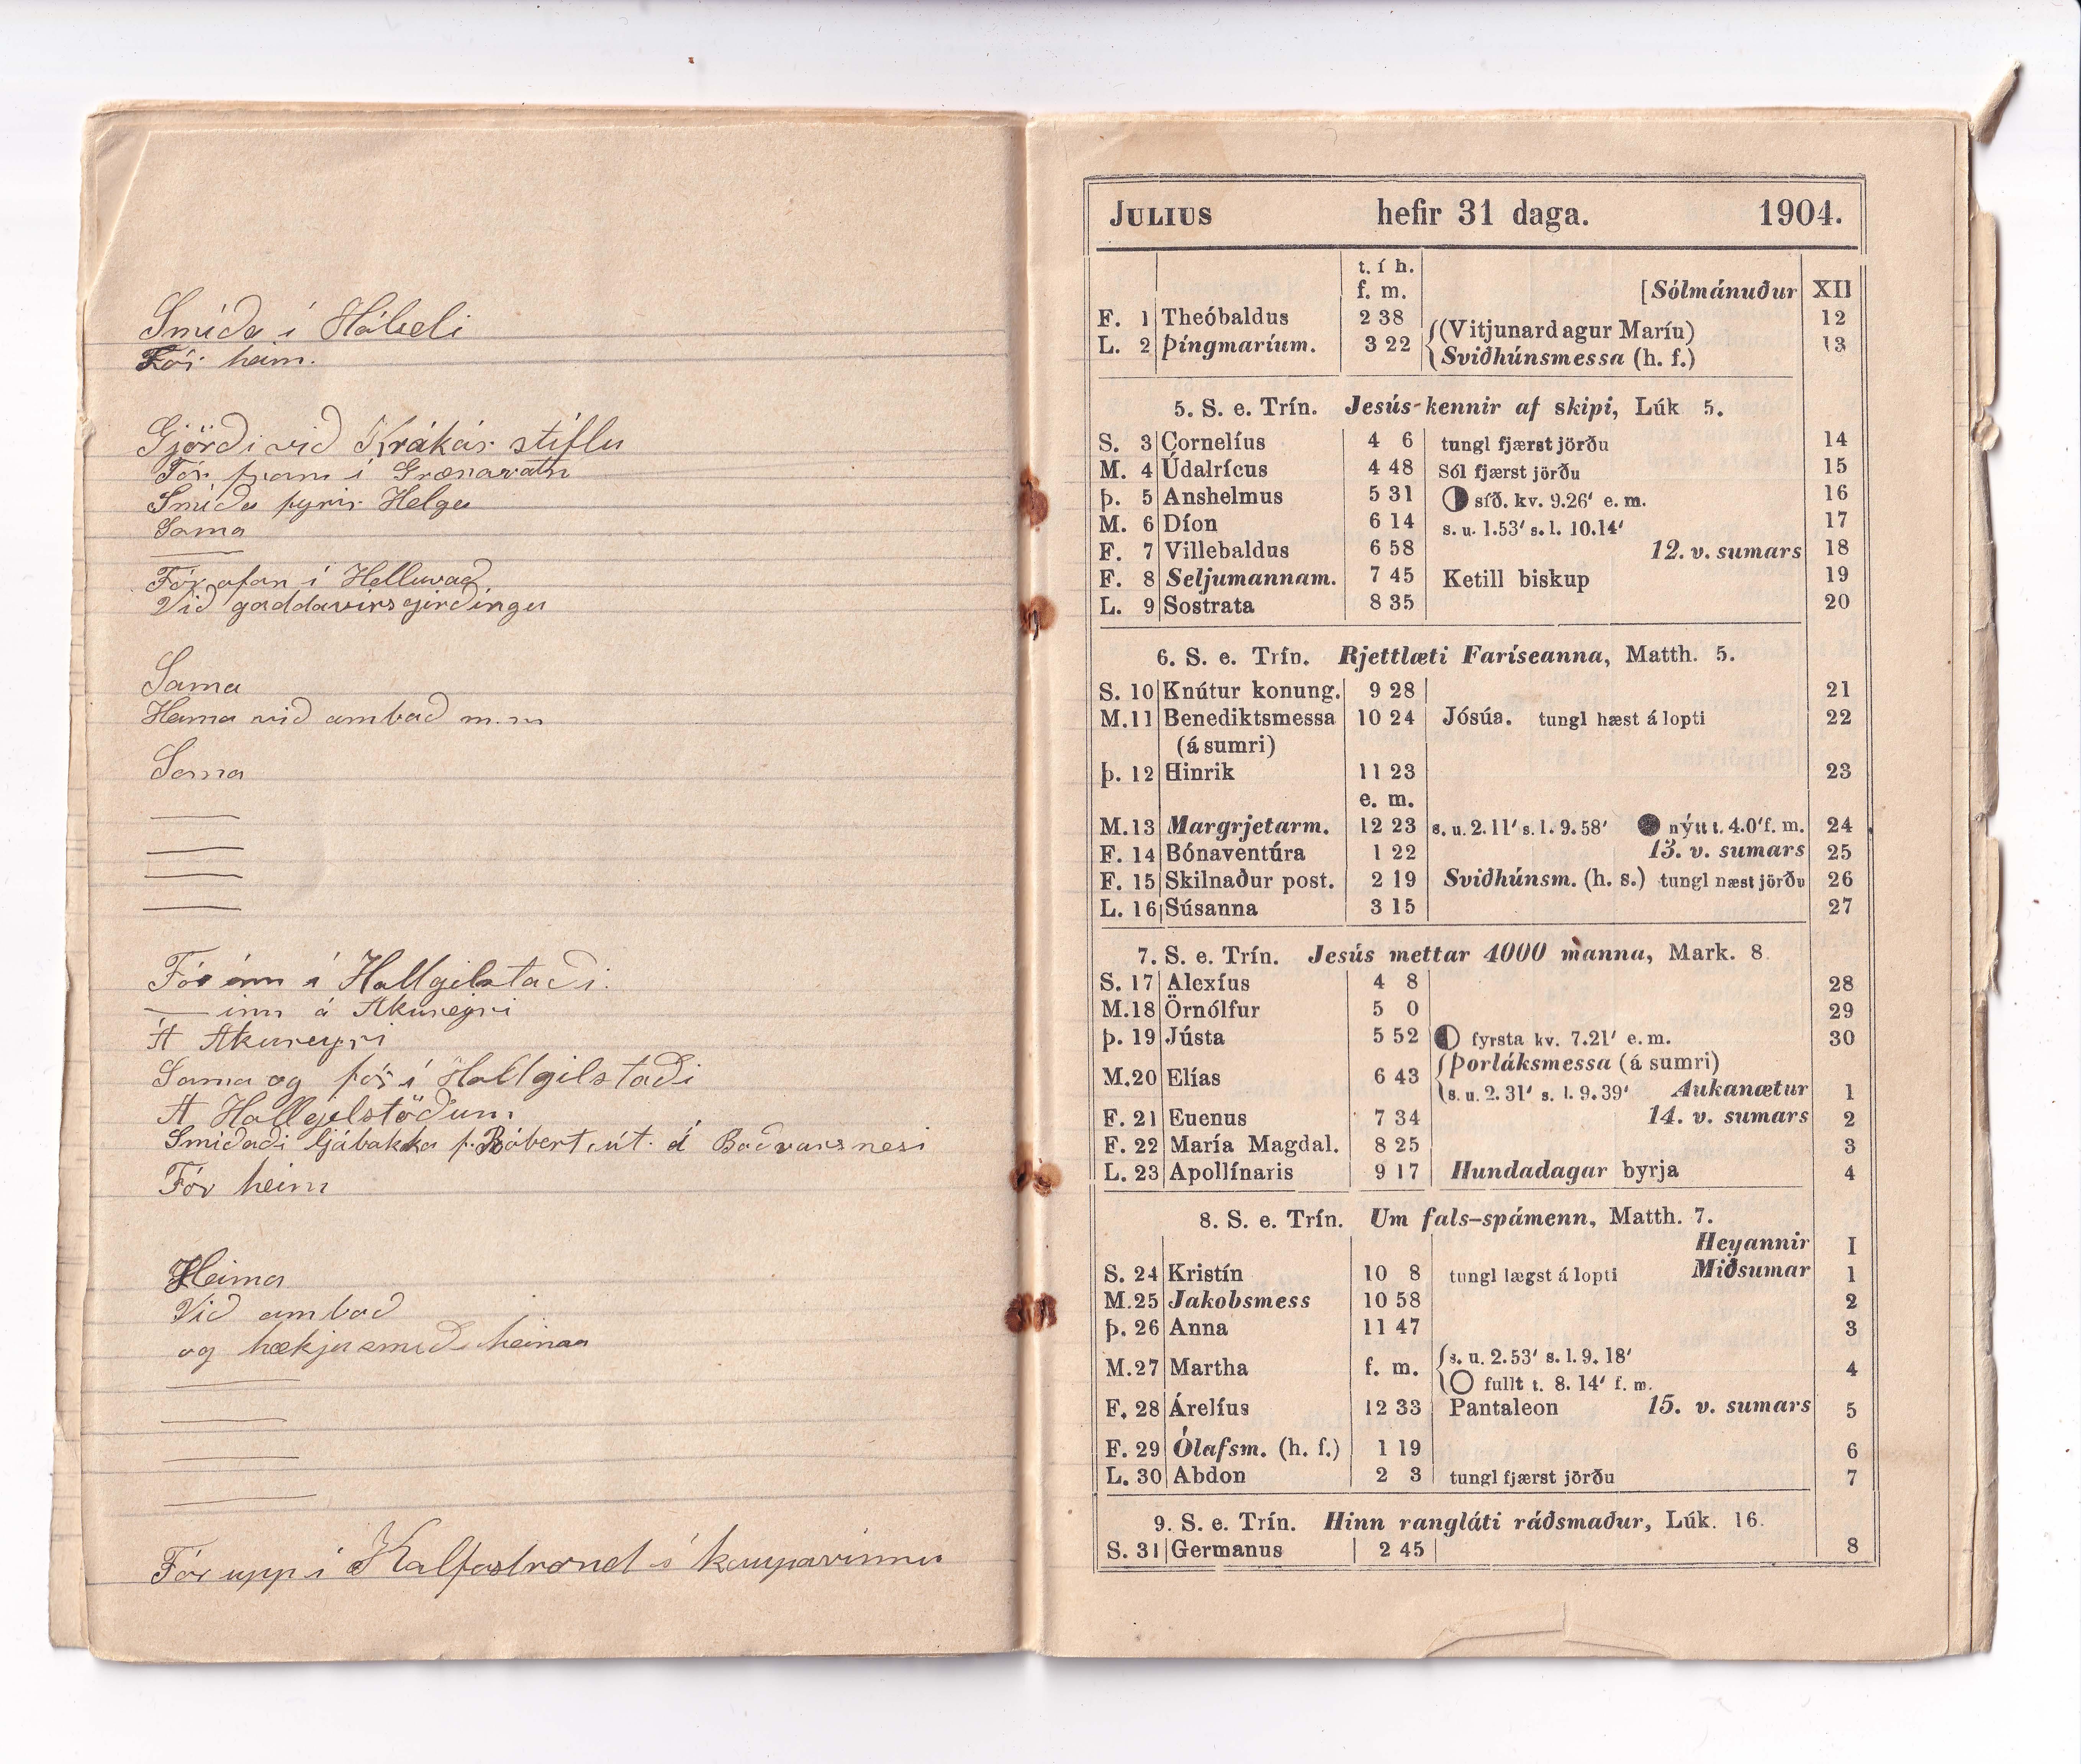 Smíða í Hólseli
Fór heim.
Gjörði við Krákár stíflu
Fór fram í Grænavatn
Smíða fyrir Helga
Sama
Fór ofan í Helluvað
Við gaddavirsgirðingu
Sama
Heima við ambað m.m
Sama
Fór inn í Hallgilstaði.
—— inn á Akureyri
Á Akureyri
Sama og fór í Hallgilstaði
Á Hallgilstöðum
Smíðaði ljábakka f. Róbert út á Boðvarsnesi
Fór heim
Heima
Við ambað
og hækjusmið heima
Fór upp í Kalfastrond í kaupavinnu
JULIUS hefir 31 daga. 1904.
t. í h.
f. m. [Sólmánuður XII
F. 1 Theóbaldus 2 38 (Vitjunardagur Maríu) 12
L. 2 Þíngmaríum. 3 22 Sviðhúnsmessa (h. f.) 13
5. S. e. Trín. Jesús kennir af skipi, Lúk 5.
S. 3 Cornelíus 4 6 tungl fjærst jörðu 14
M. 4 Údalrícus 4 48 Sól fjærst jörðu 15
Þ. 5 Anshelmus 5 31 síð. kv. 9.26′ e. m. 16
M. 6 Díon 6 14 s. u. 1.53′ s. l. 10.14′ 17
F. 7 Villebaldus 6 58 12. v. sumars 18
F. 8 Seljumannam. 7 45 Ketill biskup 19
L. 9 Sostrata 8 35 20
6. S. e. Trín. Rjettlæti Faríseanna, Matth. 5.
S. 10 Knútur konung. 9 28 21
M. 11 Benediktsmessa 10 24 Jósúa. tungl hæst á lopti 22
(á sumri)
Þ. 12 Hinrik 11 23 23
e. m.
M. 13 Margrjetarm. 12 23 s. u. 2. 11′ s. l. 9. 58′ nýtt t. 4.0′ f. m. 24
F. 14 Bónaventúra 1 22 13. v. sumars 25
F. 15 Skilnaður post. 2 19 Sviðhúnsm. (h. s.) tungl næst jörðu 26
L. 16 Súsanna 3 15 27
7. S. e. Trín. Jesús mettar 4000 manna, Mark. 8.
S. 17 Alexíus 4 8 28
M. 18 Örnólfur 5 0 29
Þ. 19 Jústa 5 52 fyrsta kv. 7.21′ e. m. 30
M. 20 Elías 6 43 Þorláksmessa (á sumri)
s. u. 2. 31′ s. l. 9. 39′ Aukanætur 1
F. 21 Euenus 7 34 14. v. sumars 2
F. 22 María Magdal. 8 25 3
L. 23 Apollínaris 9 17 Hundadagar byrja 4
8. S. e. Trín. Um fals-spámenn, Matth. 7.
Heyannir I
S. 24 Kristín 10 8 tungl lægst á lopti Miðsumar 1
M. 25 Jakobsmess 10 58 2
Þ. 26 Anna 11 47 3
M. 27 Martha f. m. s. u. 2. 53′ s. l. 9. 18′ 4
fullt t. 8. 14′ f. m.
F. 28 Árelíus 12 33 Pantaleon 15. v. sumars 5
F. 29 Ólafsm. (h. f.) 1 19 6
L. 30 Abdon 2 3 tungl fjærst jörðu 7
9. S. e. Trín. Hinn rangláti ráðsmaður, Lúk. 16.
S. 31 Germanus 2 45 8